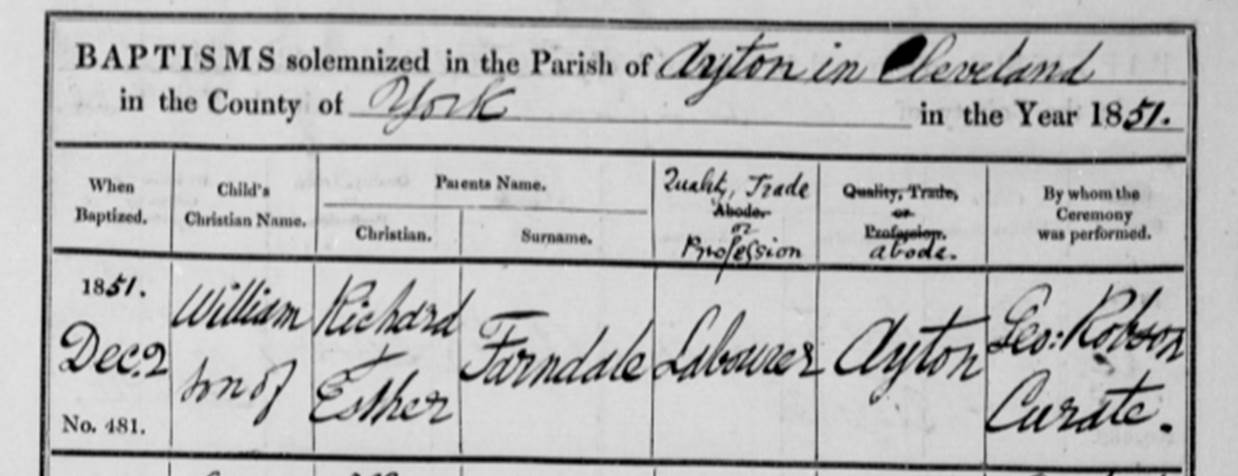 BAPTISMS solemnized in the Parish of Ayton in Cleveland
in the County of York in the Year 1851.
When
Baptized.
Child's
Christian Name.
Parents Name.
Christian.
Surname.
Quality, Trade
Abode.
or
Profession
Quality, Trade,
or
Profession.
abode.
By whom the
Ceremony
was performed.
1851.
Dec. 2
No. 481.
William
son of
Richard
+
Esther
Farndale
Labourer
Ayton
Geo: Robson
Curate.